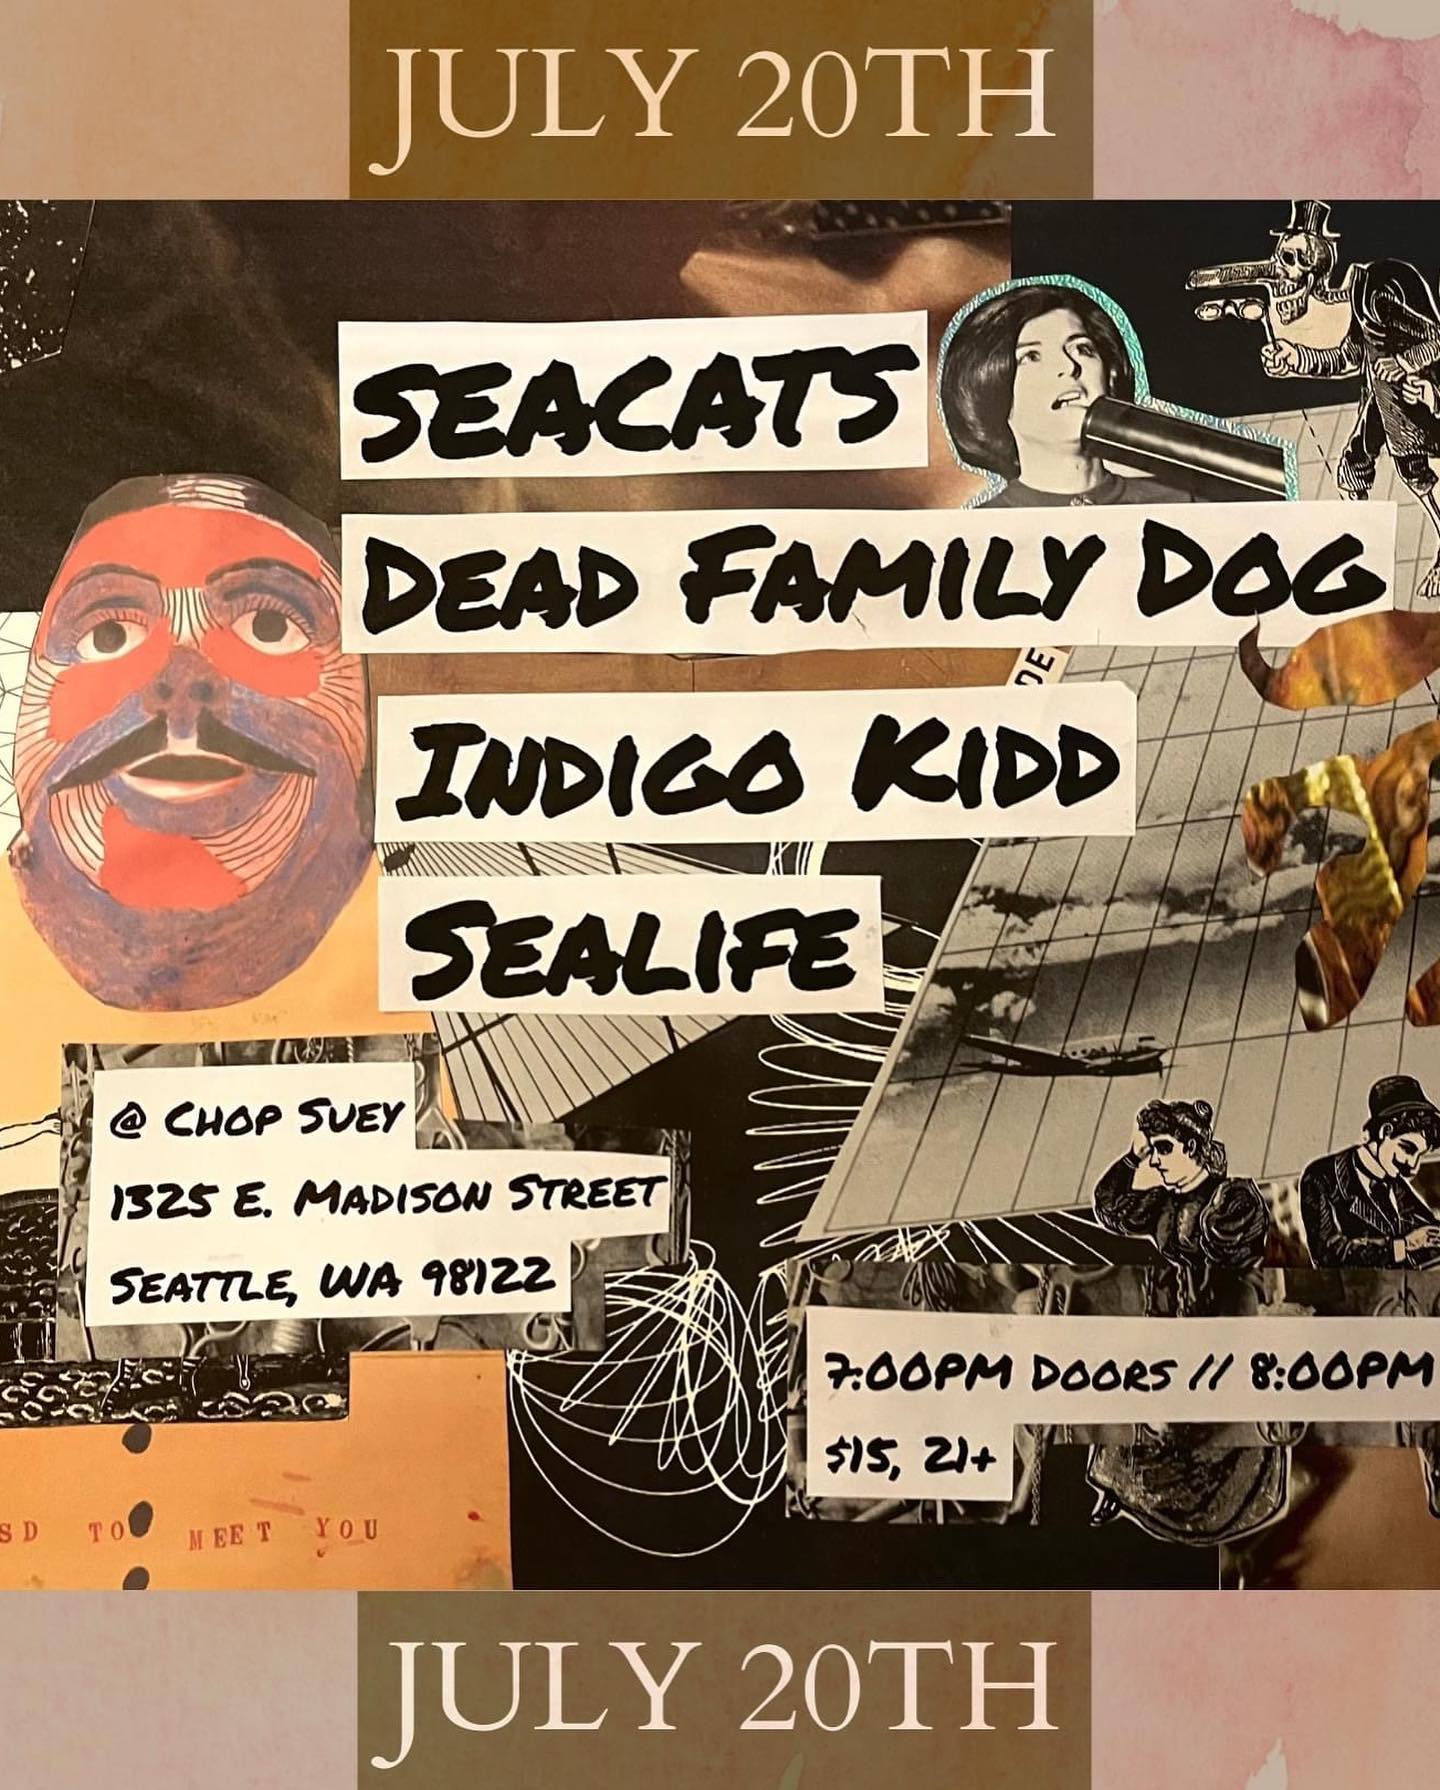 JULY 20TH
SEACATS
DEAD FAMILY DOG
DE
INDIGO KIDD
SEALIFE
@ CHOP SUEY
1325 E. MADISON STREET
SEATTLE, WA 98122
7:00PM DOORS // 8:00PM
$15, 21+
SD TO MEET YOU
JULY 20TH